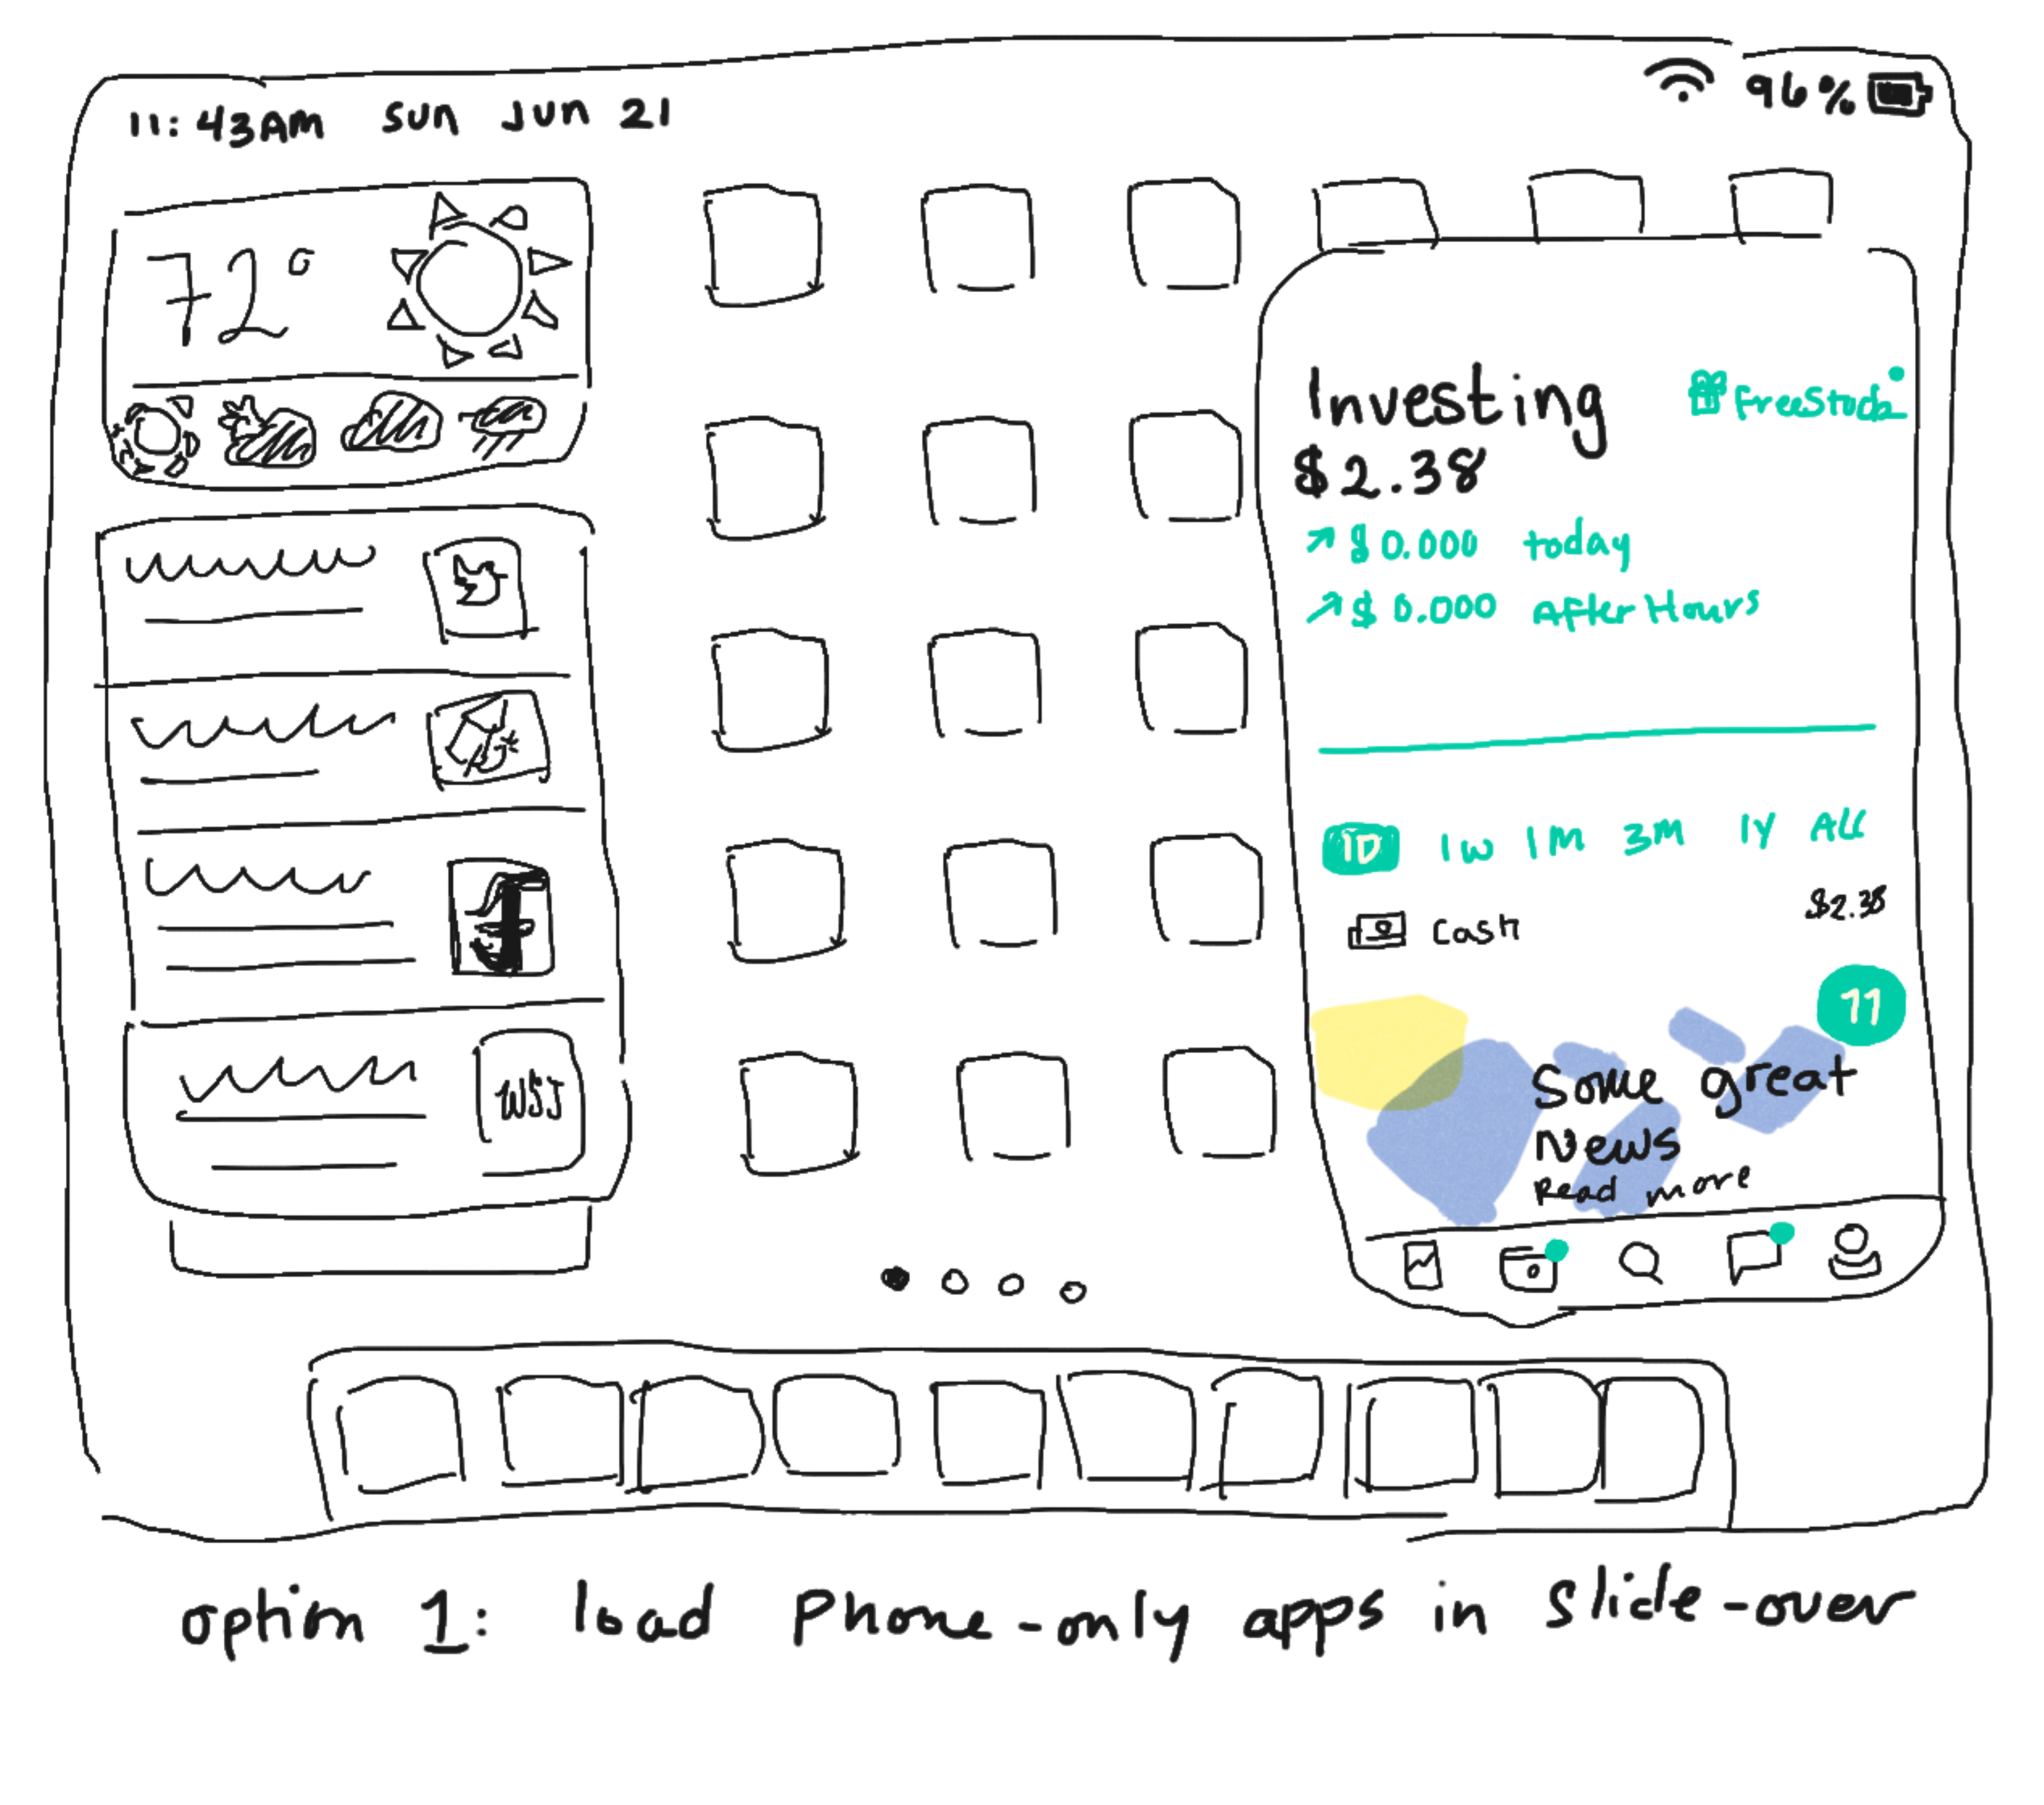 11:43AM sun Jun 21
96%
72°
WSJ
Investing
Free Stock
$2.38
↗$0.000 today
↗$0.000 After Hours
1D 1W 1M 3M 1Y ALL
Cash
$2.38
11
Some great
News
Read more
option 1: load Phone-only apps in slide-over